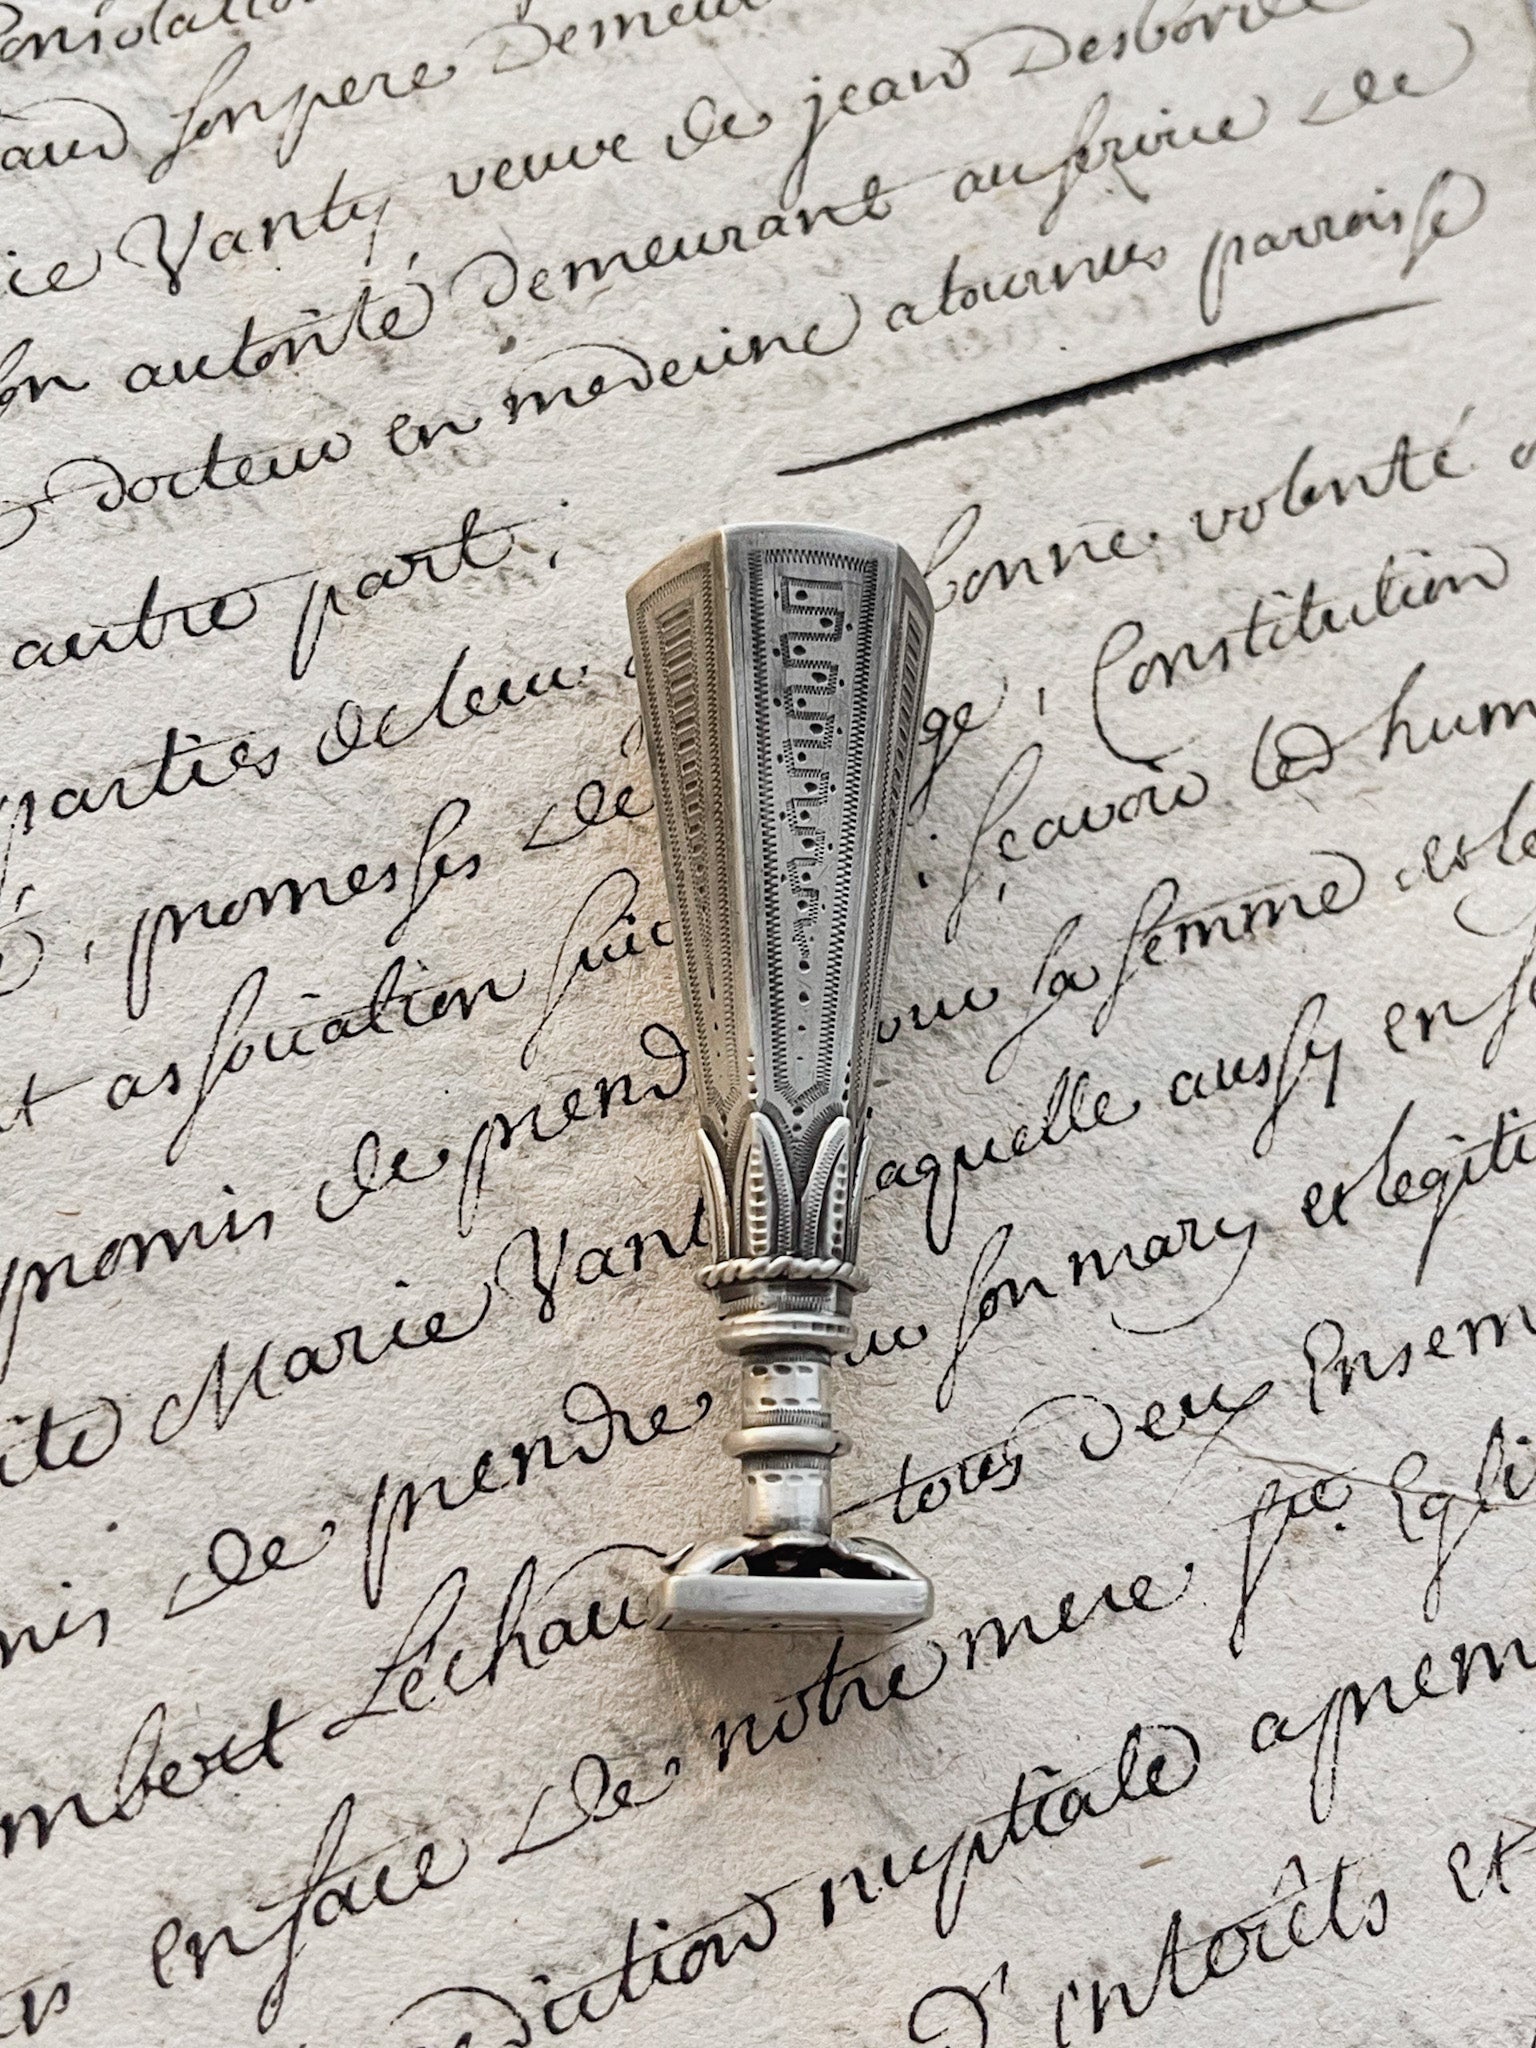 son pere Demeur
Vanty, veuve de jean Desborde
autorité Demeurant au service de
docteur en medecine a tournus parroisse
autre part;
parties de leur bonne volonté
promesses de ge, Constitution
et association suiv ; sçavoir led hum
promis de prend la femme et le
Marie Vant laquelle aussy en
is de prendre son mary et legiti
mbert Lechau tous deux Ensem
en face de notre mere Ste Egli
diction nuptiale aprem
D'interêts et